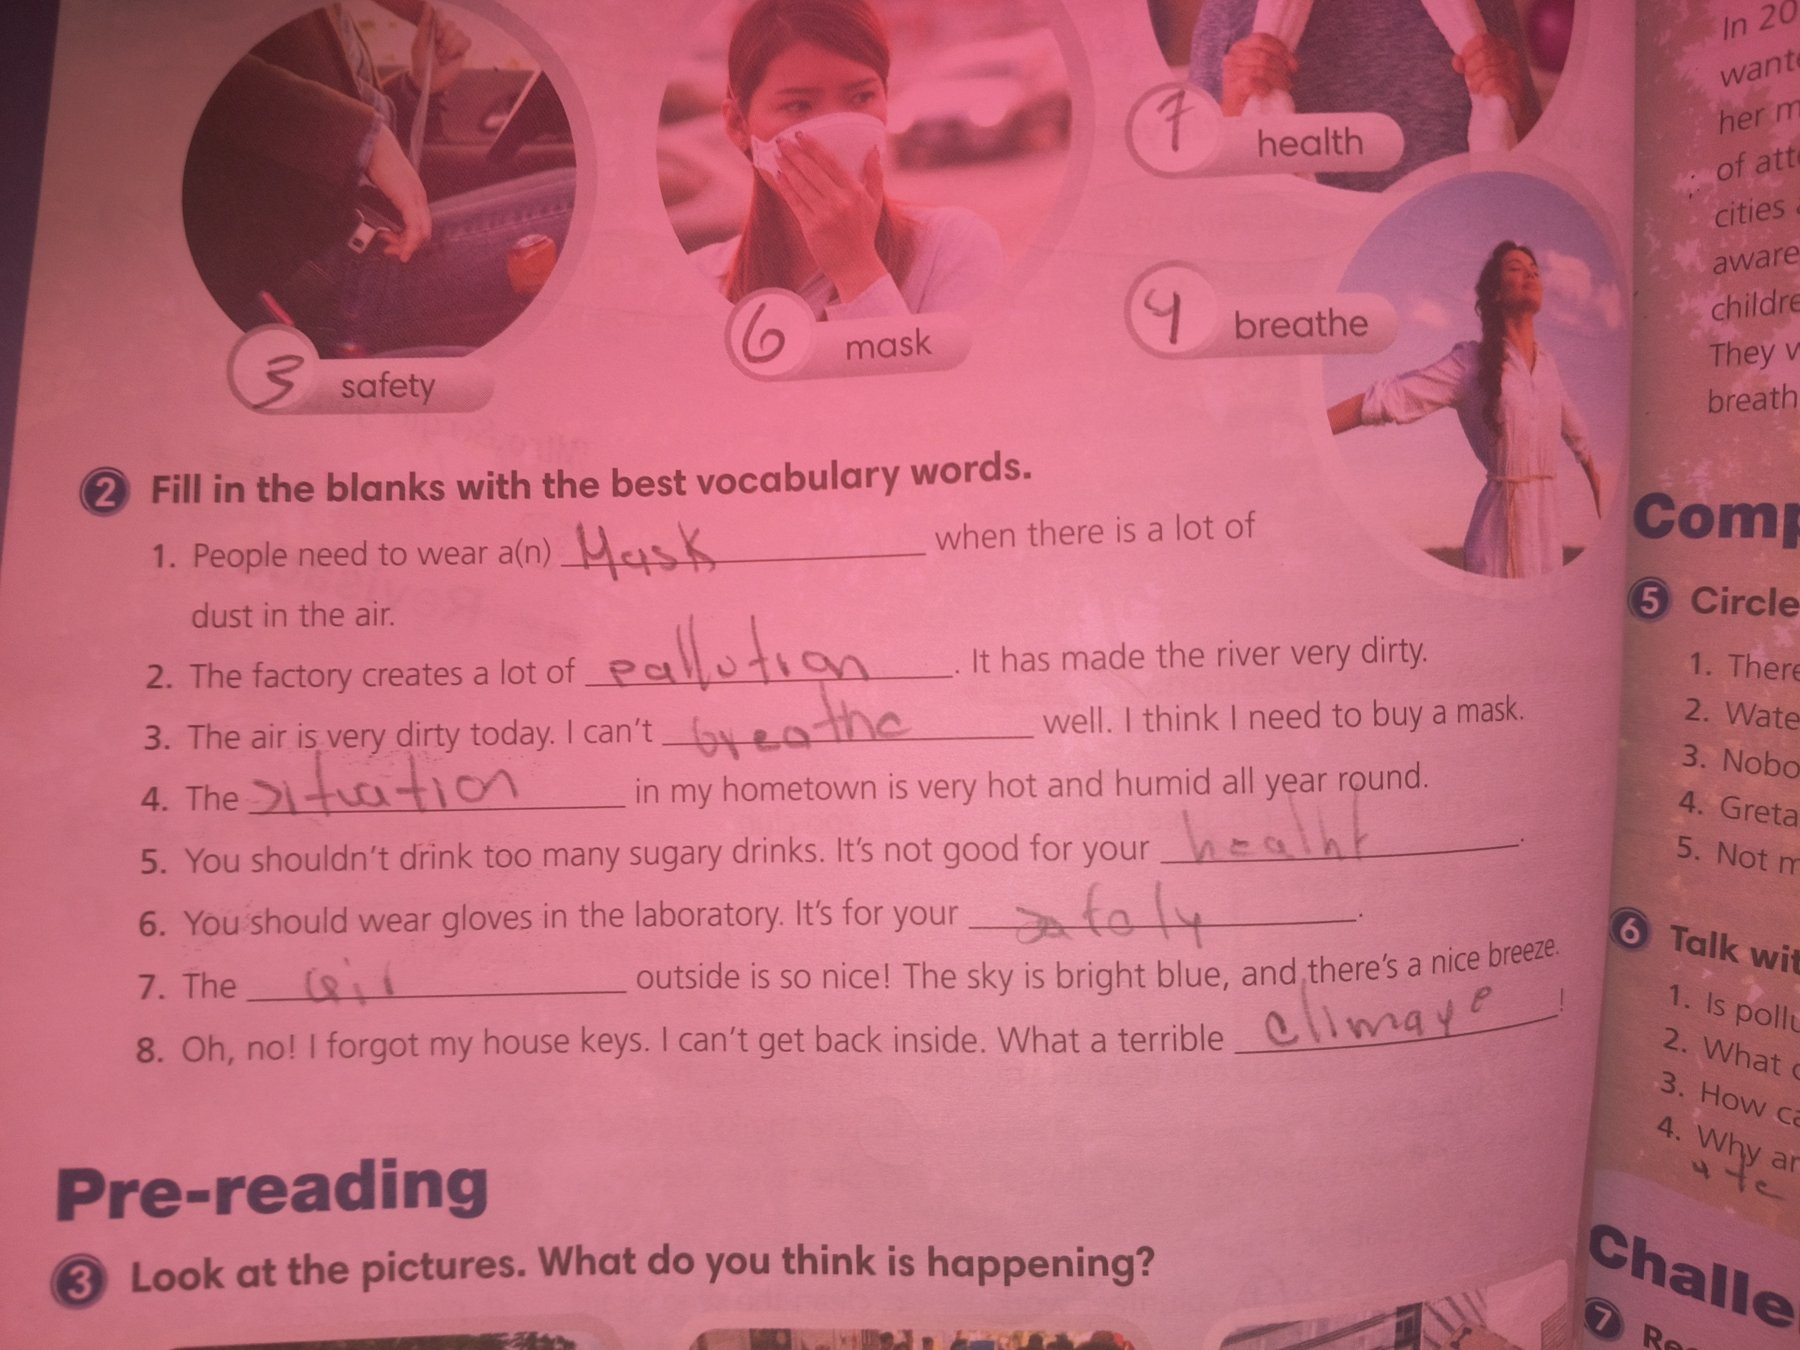 7 health
6 mask
4 breathe
3 safety
2 Fill in the blanks with the best vocabulary words.
1. People need to wear a(n) Mask when there is a lot of
dust in the air.
2. The factory creates a lot of pallution. It has made the river very dirty.
3. The air is very dirty today. I can't breathe well. I think I need to buy a mask.
4. The situation in my hometown is very hot and humid all year round.
5. You shouldn't drink too many sugary drinks. It's not good for your healht.
6. You should wear gloves in the laboratory. It's for your .
7. The air outside is so nice! The sky is bright blue, and there's a nice breeze.
8. Oh, no! I forgot my house keys. I can't get back inside. What a terrible !
Pre-reading
3 Look at the pictures. What do you think is happening?
In 20
her m
of
cities
aware
They
5 Circle
1. There
2.
3.
4. Greta
5. Not
6 Talk
1. Is
2. What
3. How
4. Why
7